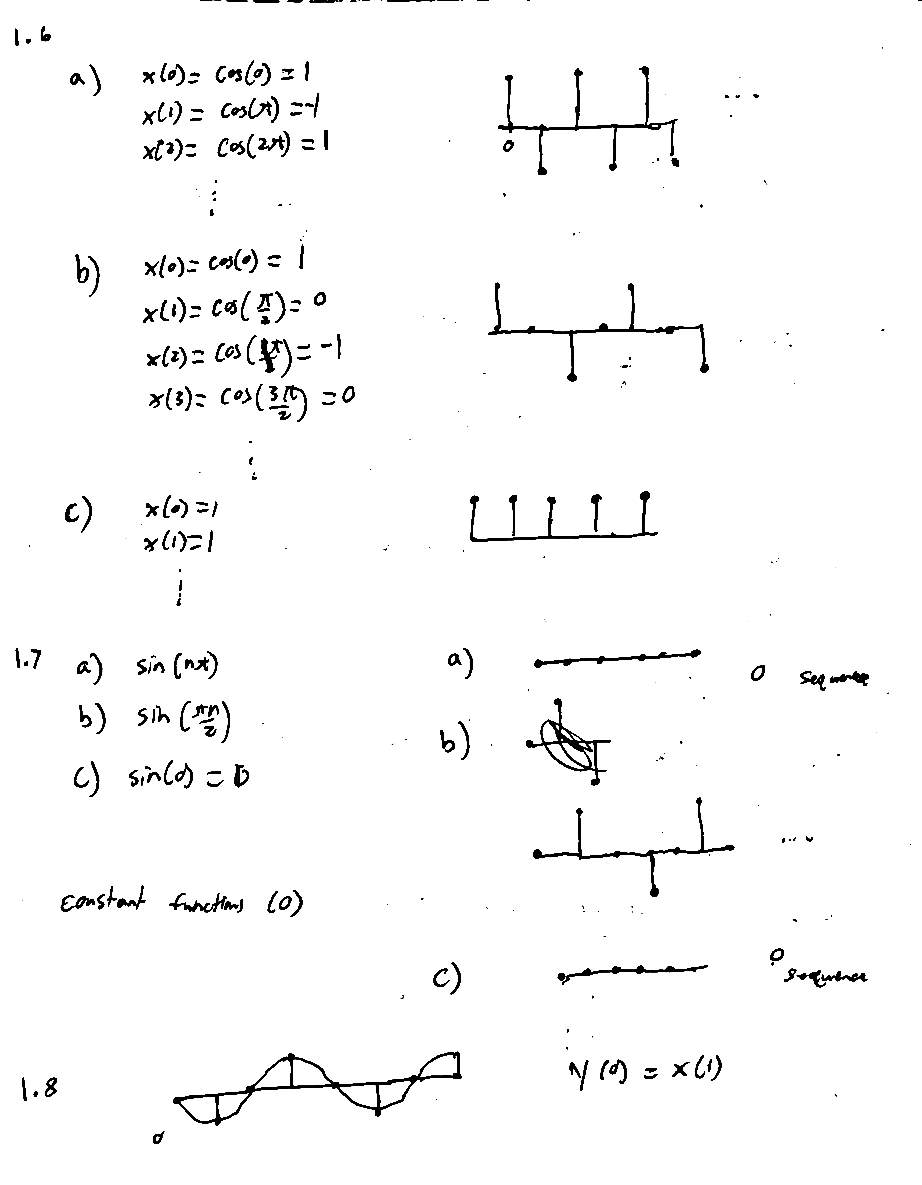 1.6
a) x(0)= cos(0) = 1
x(1) = cos(π) = -1
x(2)= cos(2π) = 1
⋮
0
...
b) x(0)= cos(0) = 1
x(1)= cos(π/2)= 0
x(2)= cos(π)= -1
x(3)= cos(3π/2) = 0
⋮
c) x(0) =1
x(1)=1
⋮
1.7 a) sin(nπ)
b) sin(πn/2)
c) sin(0) = 0
a) 0 sequence
b)
....
constant functions (0)
c) 0 sequence
1.8
0
y(0) = x(1)